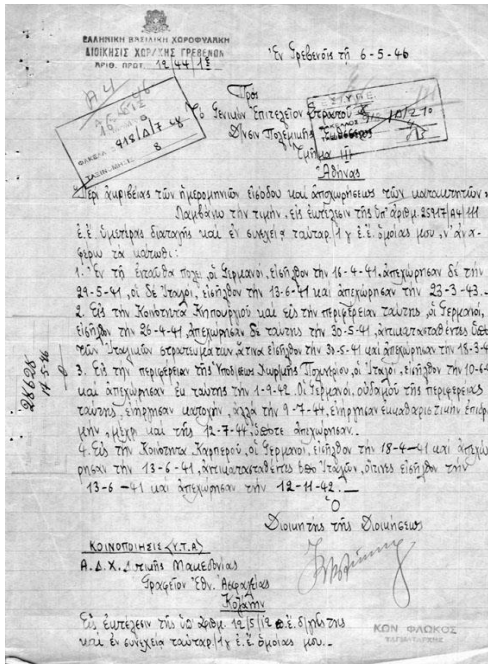 ΕΛΛΗΝΙΚΗ ΒΑΣΙΛΙΚΗ ΧΩΡΟΦΥΛΑΚΗ
ΔΙΟΙΚΗΣΙΣ ΧΩΡ/ΚΗΣ ΓΡΕΒΕΝΩΝ
ΑΡΙΘ. ΠΡΩΤ. 12/44/1ξ
Ἐν Γρεβενοῖς τῇ 6-5-46
Πρὸς
Τὸ Γενικὸν Ἐπιτελεῖον Στρατοῦ
Δ/νσιν Πολεμικῆς Ἐκθέσεως
Τμῆμα III
Ἀθήνας
ΦΑΚΕΛΛ 915/Δ/7
8
Περὶ ἀκριβείας τῶν ἡμερομηνιῶν εἰσόδου καὶ ἀποχωρήσεως τῶν κατακτητῶν.
Λαμβάνω τὴν τιμήν, εἰς ἐκτέλεσιν τῆς ὑπ' ἀριθμ. 25717/Α4/III
ἐ.ἔ. ὑμετέρας διαταγῆς καὶ ἐν συνεχείᾳ ταὐταρ. 1γ ἐ.ἔ. ὁμοίας μου, ν' ἀνα-
φέρω τὰ κάτωθι:
1. Ἐν τῇ ἐνταῦθα πόλει, οἱ Γερμανοί, εἰσῆλθον τὴν 16-4-41, ἀπεχώρησαν δὲ τὴν
29-5-41, οἱ δὲ Ἰταλοί, εἰσῆλθον τὴν 13-6-41 καὶ ἀπεχώρησαν τὴν 23-3-43.-
2. Εἰς τὴν Κοινότητα Κηπουργιοῦ καὶ εἰς τὴν περιφέρειαν ταύτης, οἱ Γερμανοί,
εἰσῆλθον τὴν 26-4-41, ἀπεχώρησαν δὲ ταύτης τὴν 30-5-41, ἀντικατασταθέντες ὑπὸ
τῶν Ἰταλικῶν στρατευμάτων, ἅτινα εἰσῆλθον τὴν 30-5-41 καὶ ἀπεχώρησαν τὴν 18-3-4
3. Εἰς τὴν περιφέρειαν τῆς Ὑποδ/σεως Χωρ/κῆς Πολυνερίου, οἱ Ἰταλοί, εἰσῆλθον τὴν 10-6-4
καὶ ἀπεχώρησαν ἐκ ταύτης τὴν 1-9-42. Οἱ Γερμανοί, οὐδαμοῦ τῆς περιφερείας
ταύτης, ἐνήργησαν κατοχήν, ἀλλὰ τὴν 9-7-44, ἐνήργησαν ἐκκαθαριστικὴν ἐπιδρο-
μήν, μέχρι καὶ τῆς 12-7-44, ὁπότε ἀπεχώρησαν.-
4. Εἰς τὴν Κοινότητα Καρπεροῦ, οἱ Γερμανοί, εἰσῆλθον τὴν 18-4-41 καὶ ἀπεχώ
ρησαν τὴν 13-6-41, ἀντικατασταθέντες ὑπὸ Ἰταλῶν, οἵτινες εἰσῆλθον τὴν
13-6-41 καὶ ἀπεχώρησαν τὴν 12-11-42.-
28628
17-5-46
Ὁ
Διοικητὴς τῆς Διοικήσεως
ΚΟΙΝΟΠΟΙΗΣΙΣ (Υ.Τ.Α)
Α.Δ.Χ. Δ τικῆς Μακεδονίας
Γραφεῖον Ἐθν. Ἀσφαλείας
Κοζάνην
Εἰς ἐκτέλεσιν τῆς ὑπ' ἀριθμ. 12/5/12 ἐ.ἔ. δ/γῆς της
καὶ ἐν συνεχείᾳ ταὐταρ. 1γ ἐ.ἔ. ὁμοίας μου.-
ΚΩΝ ΦΛΩΚΟΣ